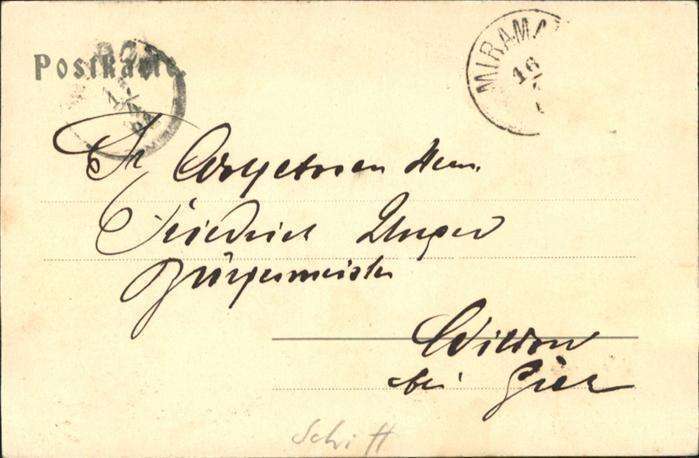 Postkarte.
MIRAMA
16
Sr. Wohlgeboren Herrn
Friedrich Unger
Bürgermeister
Wildon
bei Graz
Schrift